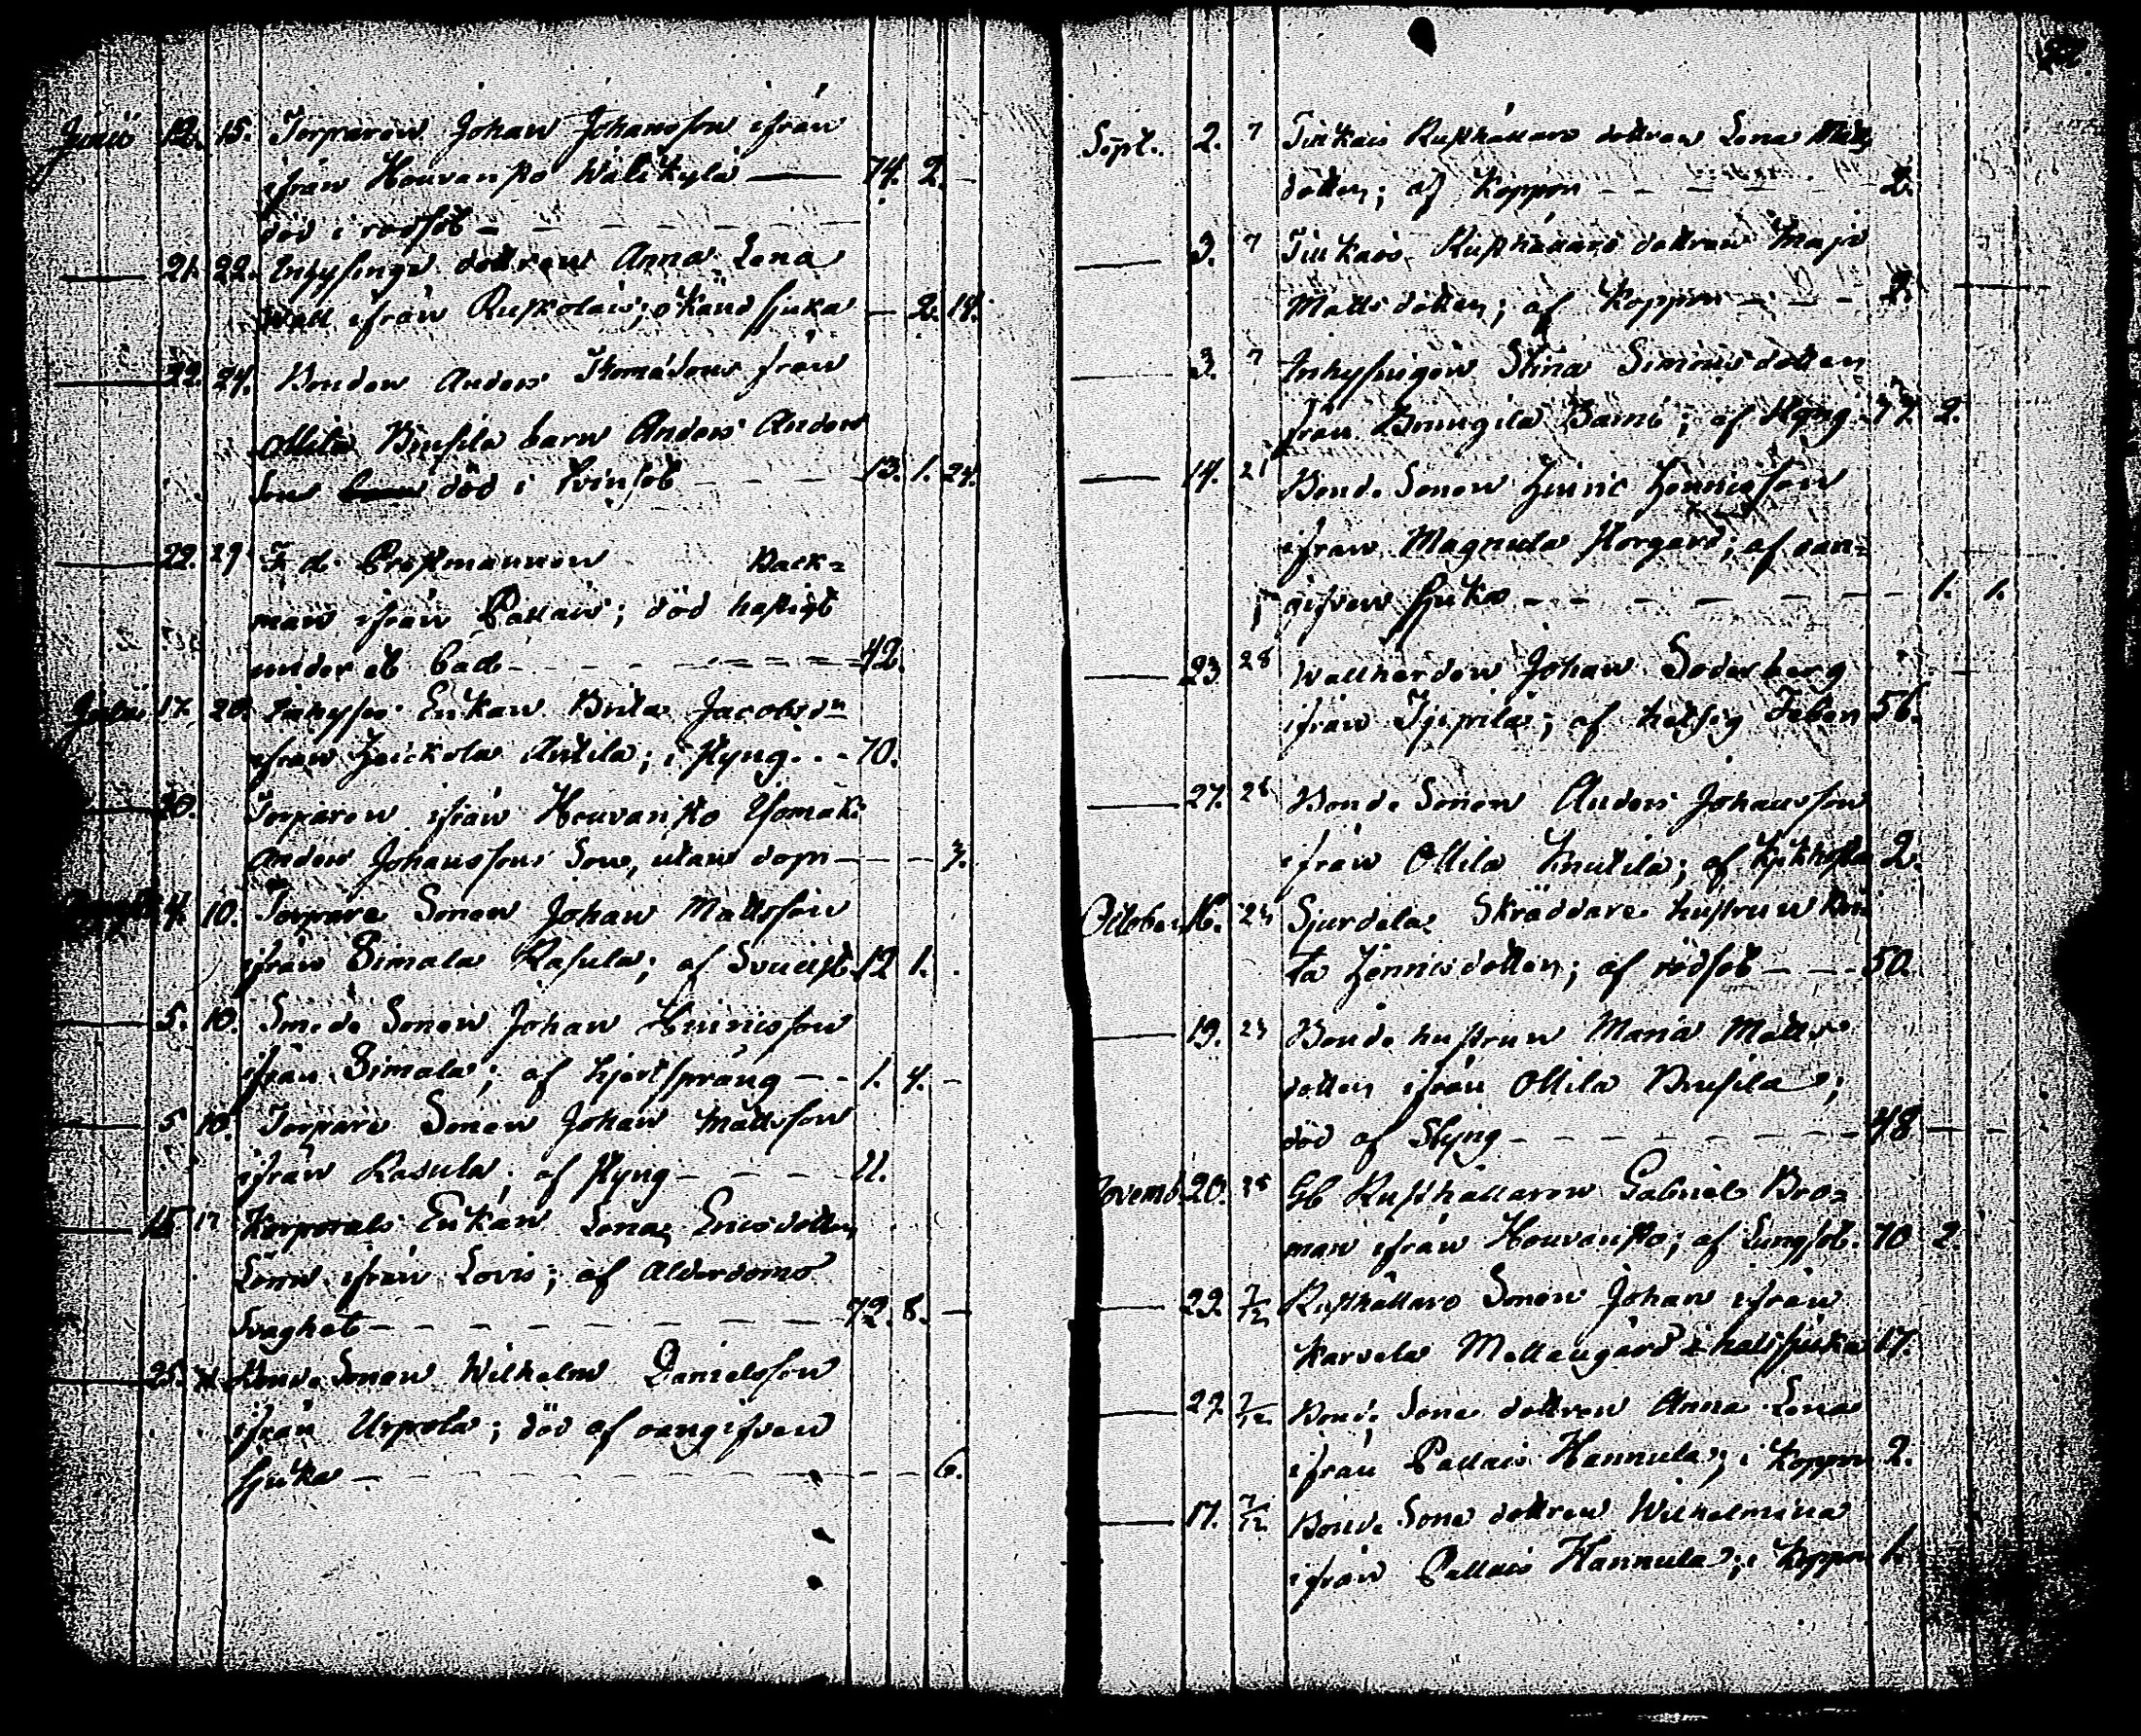 Junii 12. 15. Torparen Johan Johansson ifrån
ifrån Houvanpä Wälikylä — 74. 2. –
död i rödsot –
— 21. 22. Inhysinge dottren Anna Lena
Wall ifrån Ruskolais; okänd sjuka – 2. 18.
— 22. 24. Bonden Anders Thomassons från
Ottila Brusila barn Anders Anders
Sons död i tvinsot – 13. 1. 24.
— 22. 29 F. d. Prestmannen Back=
man ifrån Pallais; död hastigt
under et bad – 42.
Julii 17. 20. Inhyses Enkan Brita Jacobsdr
ifrån Antila; i styng . . – 70.
— 20. Torparen ifrån Houvanpä Isomäki
Anders Johanssons Son, utan dop – 3.
4. 10. Torpare Sonen Johan Mattsson
ifrån Simala Rasula; af 12 1.
— 5. 10. Smeds Sonen Johan Henricsson
ifrån Simala; af hjertsprång – 1. 4. –
— 5 10. Torpare Sonen Johan Mattsson
ifrån Rasula; af styng – 11.
— 15. 17 Korporals Enkan Lena Ericsdotter
Lönn ifrån Lovis; af Ålderdoms
Svaghet – 72. 8. —
— 25. Bonde Sonen Wilhelm Danielsson
ifrån Urpola; död af oangifven
sjuka – 6.
Sept. 2. 7 Tiukais Rusthållare dottren Lena Matts
dotter; af koppor – 2.
— 3. 7 Tiukais Rusthållare dottren Maja
Matts dotter; af koppor – 2. —
— 3. 7 Inhysingen Stina Simonsdotter
från Brusila; af styng. 77 2.
— 14. 21 Bonde Sonen Henric Henricsson
ifrån Magnula Norgård; af oan=
gifven sjuka – 1. 1.
— 23. 28 Wallherden Johan Söderberg
ifrån; af hetsig Feber 56.
— 27. 28 Bonde Sonen Anders Johansson
ifrån Ottila Knutila; af kikhosta 2.
October 16. 23 Sjurdela Skräddare hustrun Bri
ta Henricsdotter; af rödsot – 50.
— 19. 23 Bonde hustrun Maria Matts
dotter ifrån Ottila Brusila;
död af Styng – 48 – –
Novemb. 20. Gl Rusthållaren Gabriel Bro=
man ifrån Houvanpä; af Lungsot. 70 2.
— 29. 7/12 Rusthållare Sonen Johan ifrån
Karvela Mellangård i halssjuka 17.
— 27 7/12. Bonde Sone dottren Anna Lena
ifrån Pallais Hannula; i koppor 2.
— 17. 7/12. Bonde Sone dottren Wilhelmina
ifrån Pallais Hannula; i koppor 1.